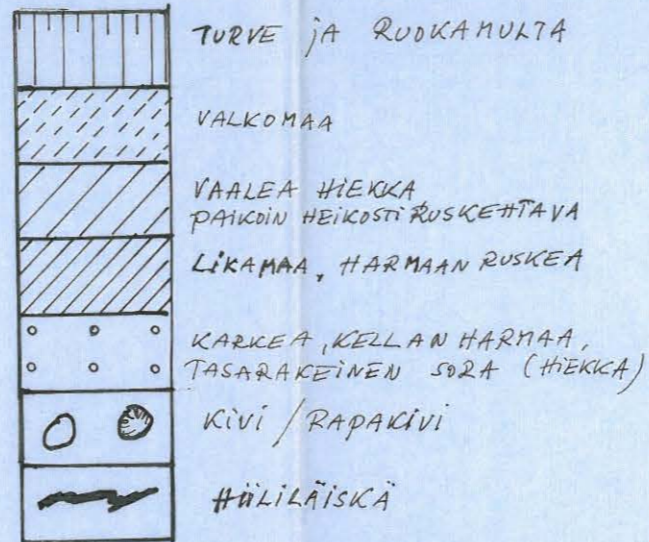 TURVE jA RUOKAMULTA
VALKOMAA
VAALEA HIEKKA
PAIKOIN HEIKOSTI RUSKEHTAVA
LIKAMAA, HARMAAN RUSKEA
KARKEA, KELLAN HARMAA,
TASARAKEINEN SORA (HIEKKA)
KIVI / RAPAKIVI
HIILILÄISKÄ